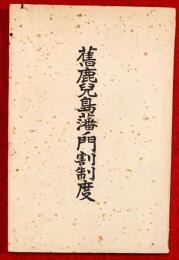 舊鹿兒島藩門割制度